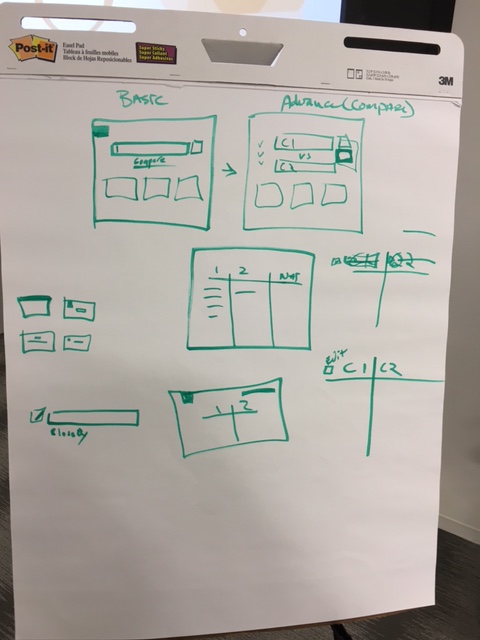 Post-it
Easel Pad
Tableau à feuilles mobiles
Block de Hojas Reposicionables
Super Sticky
Super Collant
Super Adhesivas
3M
BASIC
ADVANCE (COMPARE)
Compare
C1
VS
C2
1 2
Edit
C1 C2
1 2